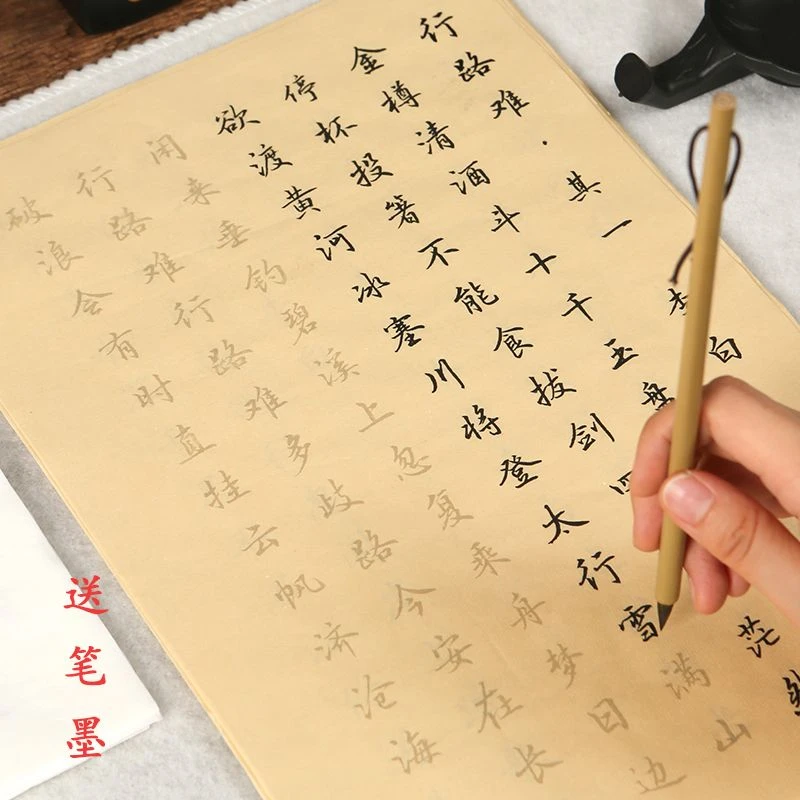 行路难·其一 李白
金樽清酒斗十千玉盘
停杯投箸不能食拔剑四茫
欲渡黄河冰塞川将登太行雪满山
闲来垂钓碧溪上忽复乘舟梦日边
行路难行路难多歧路今安在长
破浪会有时直挂云帆济沧海
送笔墨